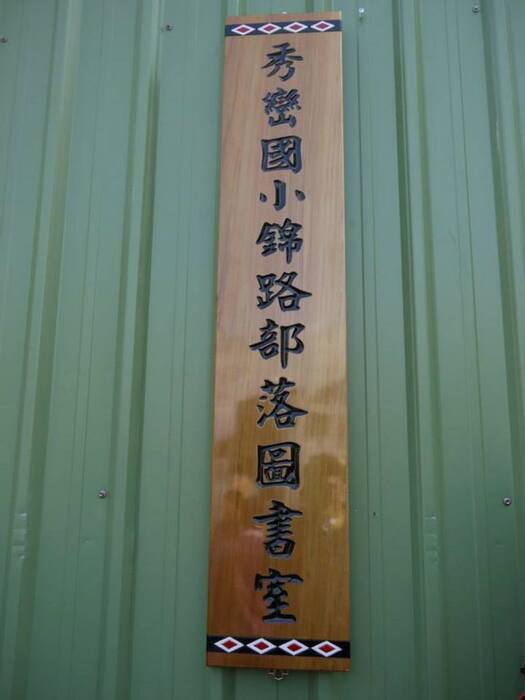 秀巒國小錦路部落圖書室